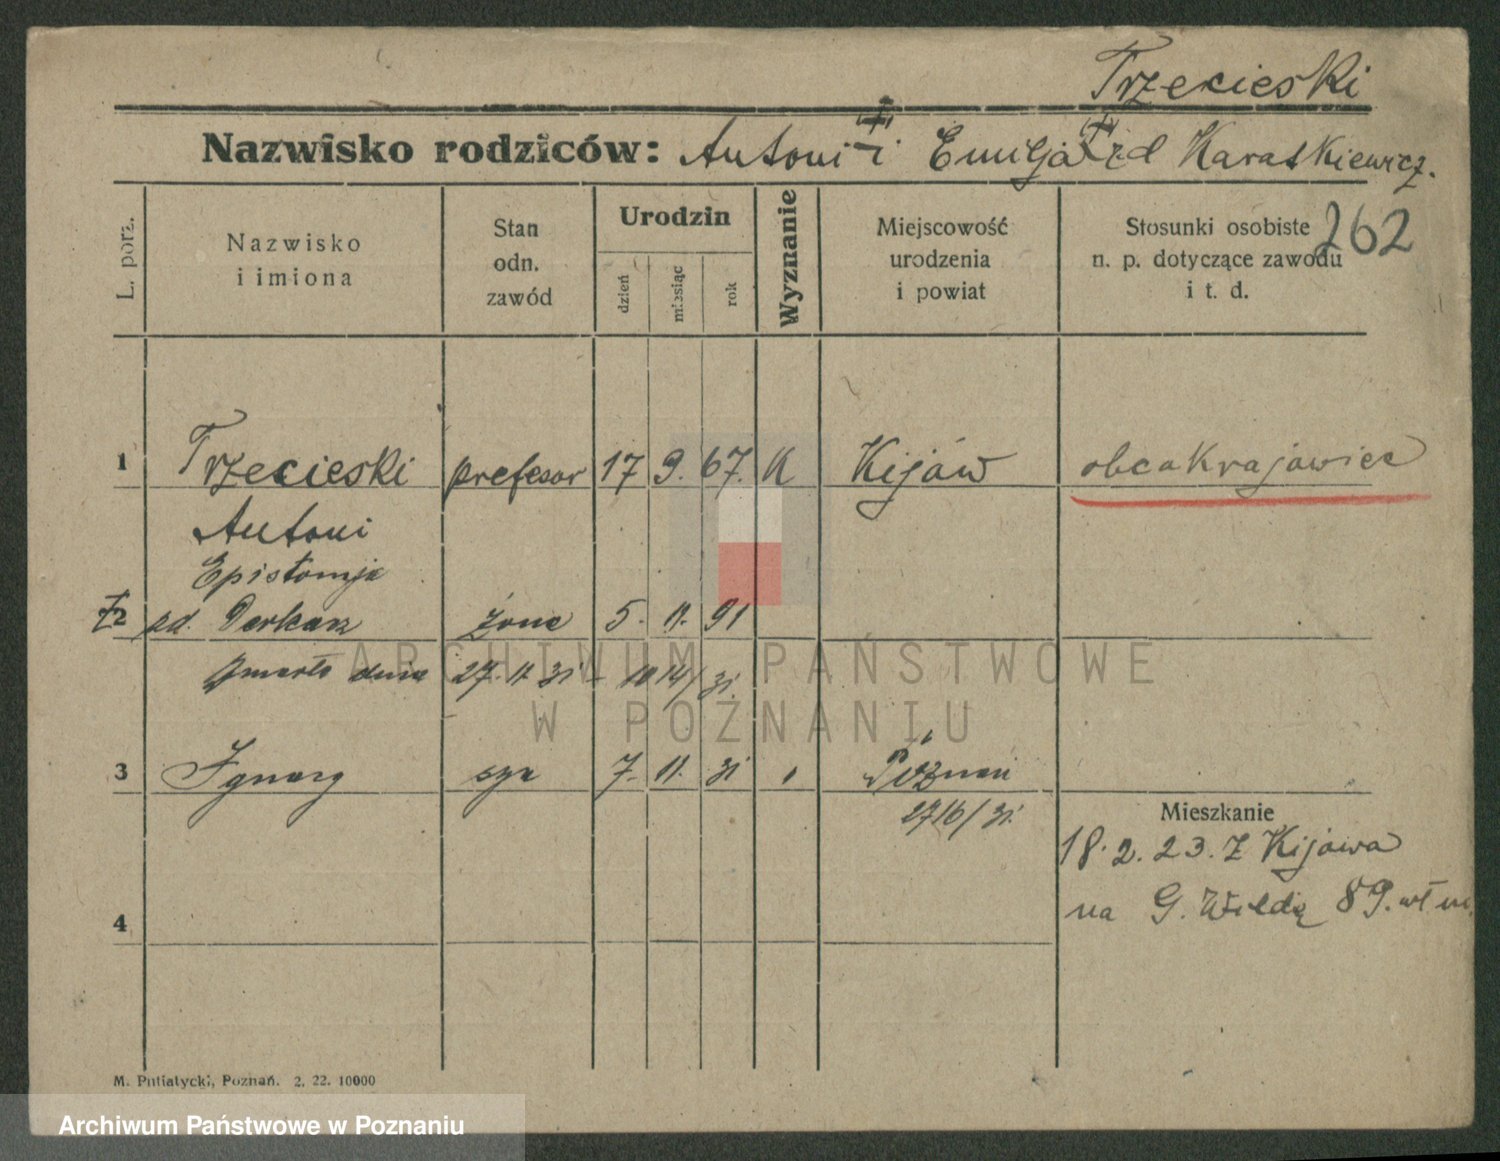 Trzecieski
Nazwisko rodziców: Antoni i Emilja zd Karaśkiewicz.
262
L. porz.
Nazwisko i imiona
Stan odn. zawód
Urodzin
dzień
miesiąc
rok
Wyznanie
Miejscowość urodzenia i powiat
Stosunki osobiste n. p. dotyczące zawodu i t. d.
1 Trzecieski profesor 17 9. 67. K Kijów obcokrajowiec
Antoni
Epistomja
2 zd. Derkacz żona 5. 11. 91
Zmarła dnia 27. 11 31 - 1014/31.
3 Ignacy syn 7. 11. 31 Poznań
2716/31.
Mieszkanie
18. 2. 23. z Kijowa
na G. Wildę 89.
4
M. Putiatycki, Poznań. 2. 22. 10000
ARCHIWUM PAŃSTWOWE
W POZNANIU
Archiwum Państwowe w Poznaniu